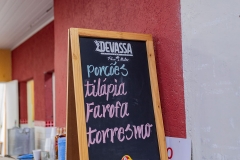 DEVASSA
Porções
tilápia
Farofa
torresmo